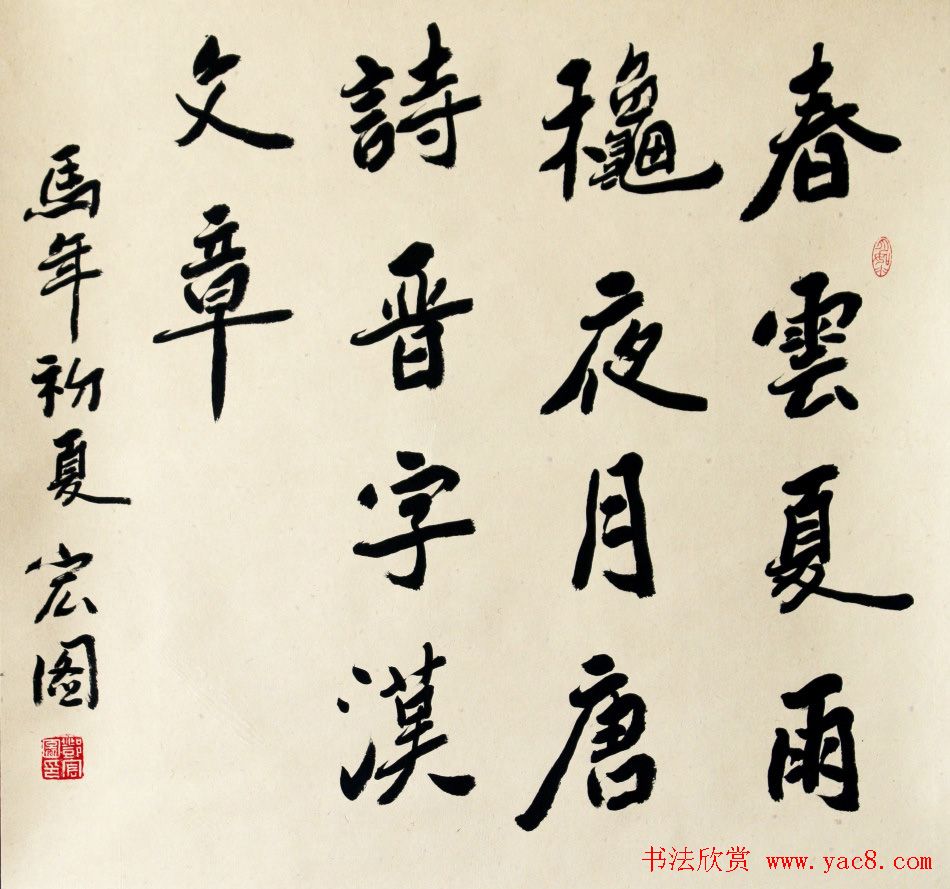 春雲夏雨
龝夜月唐
詩晋字漢
文章
馬年初夏 宏图
书法欣赏 www.yac8.com